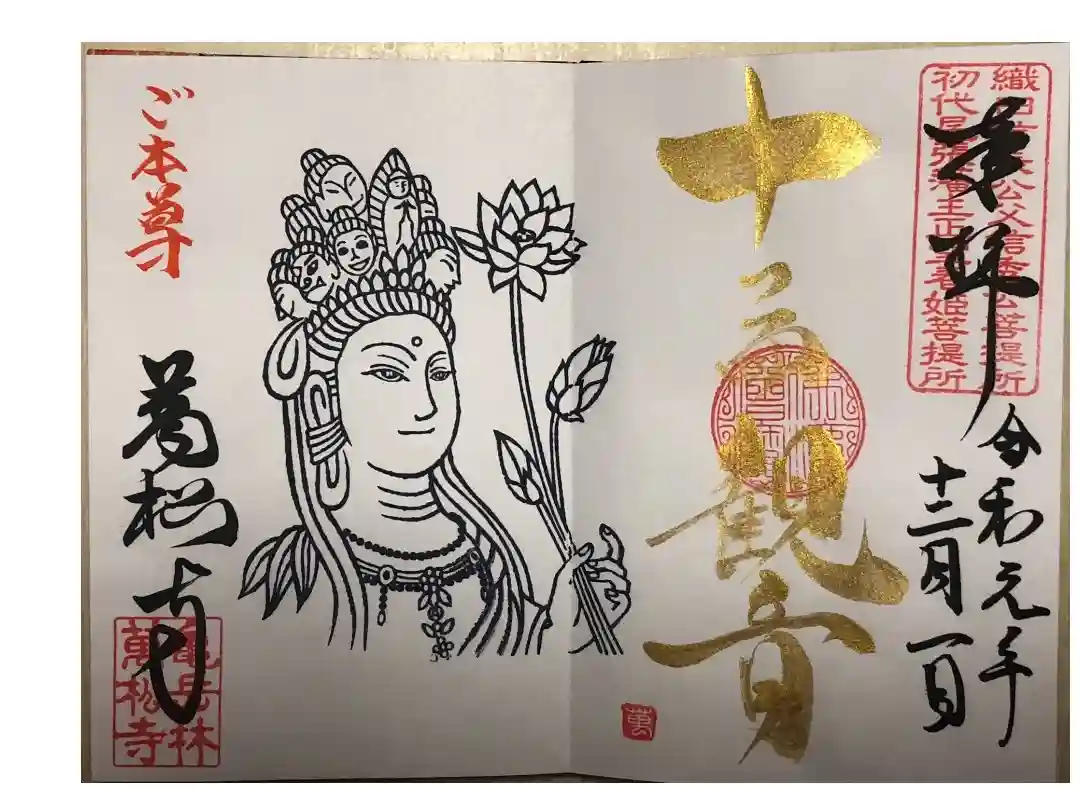 織田信長公父信秀公菩提所
初代尾張藩主正室春姫菩提所
奉拝
令和元年
十二月一日
十一面観音
萬
ご本尊
萬松寺
亀岳林
萬松寺